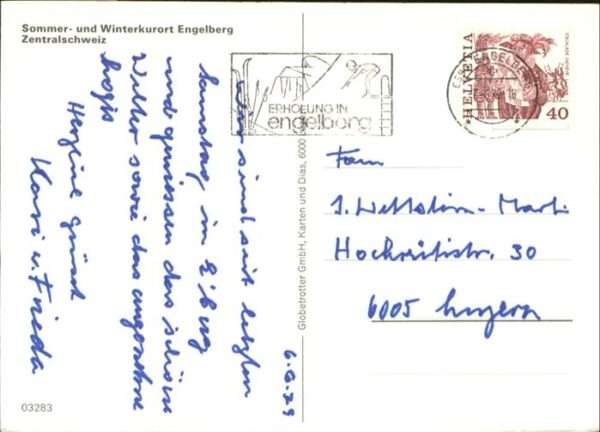 Sommer- und Winterkurort Engelberg
Zentralschweiz
6.6.79
Wir sind seit letzten
Samstag in E'berg
und geniessen das schöne
Wetter sowie das angenehme
Logis
Herzliche Grüsse
Kari u. Frieda
03283
Globetrotter GmbH, Karten und Dias, 6000
ERHOLUNG IN
engelberg
ENGELBERG
HELVETIA
40
Fam.
J. Wettstein-Marti
Hochrütistr. 30
6005 Luzern